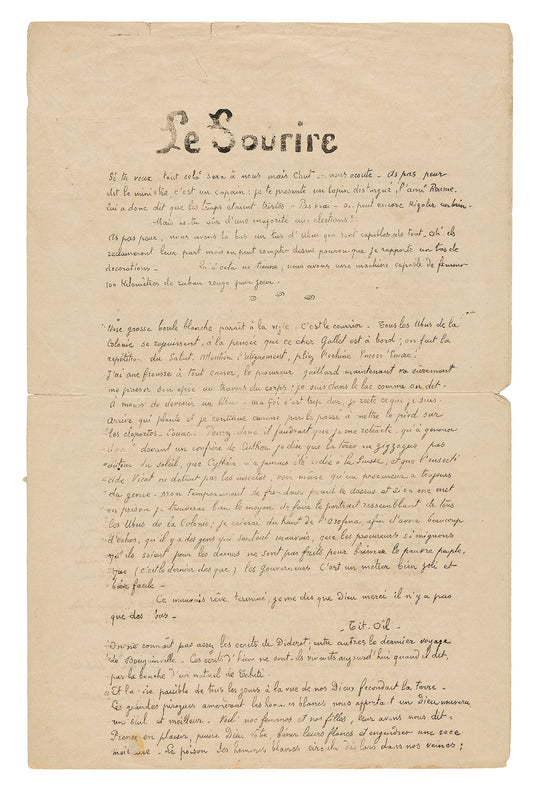 Le Sourire
Si tu veux tout cela sera à nous mais chut on nous écoute - As pas peur
dit le ministre c'est un copain: je te presente un lapin distingué, l'ami
lui a donc dit que les temps étaient tristes - Pas vrai - on peut encore rigoler un brin.
Mais es-tu sûr d'une majorité aux élections?
As pas peur, nous avons là bas un tas d' qui sont capables de tout. Oh! ils
reclameront leur part mais on peut compter dessus pourvu que je rapporte un tas de
decorations - Qu'à cela ne tienne, nous avons une machine capable de
100 kilomètres de ruban rouge par jour.
Une grosse boule blanche parait à la vigie. C'est le courrier - Tous les Ubus de la
Colonie se rejouissent, à la pensée que ce cher Gallet est à bord; on fait la
repétition du Salut. Attention l'alignement, pliez l'echine Encore
J'ai une frousse à tout casser, le procureur gaillard maintenant va sûrement
me passer son épée au travers du corps: je suis dans le lac comme on dit.
A moins de devenir un Ubu - ma foi c'est trop dur, je reste ce que je suis.
Arrive qui plante et je continue comme par le passé à mettre le pied sur
les cloportes - Couac - donc il faudrait que je me retracte, qu'à genoux
devant un confrère de je dise que la terre ne zigzague pas
autour du soleil, que n'a jamais été à la Suisse, et que l'insecti
cide Vicat ne détruit pas les insectes, voir même qu'un procureur a toujours
du genie. Mon temperament de prend le dessus et si on me met
en prison je trouverai bien le moyen de faire le portrait ressemblant de tous
les Ubus de la Colonie; je crierai du haut de l'Orofina, afin d'avoir beaucoup
d'échos, qu'il y a des gens qui sentent mauvais, que les procureurs si mignons
qu'ils soient pour les dames ne sont pas faits pour brimer le pauvre peuple,
que (c'est le dernier des que) les Gouverneurs C'est un metier bien joli et
bien facile -
Ce mauvais rêve terminé, je me dis que Dieu merci il n'y a pas
que des -
Tit-Oil -
On ne connaît pas assez les ecrits de Diderot; entre autres le dernier voyage
de Bougainville - Ces ecrits d'hier ne sont-ils vivants aujourd'hui quand il dit,
par la bouche d'un naturel de Tahiti:
Et la vie paisible de tous les jours à la vue de nos Dieux fecondait la Terre -
Les grandes pirogues amenèrent les hommes blancs nous apportant un dieu nouveau
seul et meilleur - Voilà nos femmes et nos filles, leur avons nous dit -
Prenez en plaisir, puisse Dieu vôtre, bénir leurs flancs et engendrer une race
- Le poison des hommes blancs circula dès lors dans nos veines;